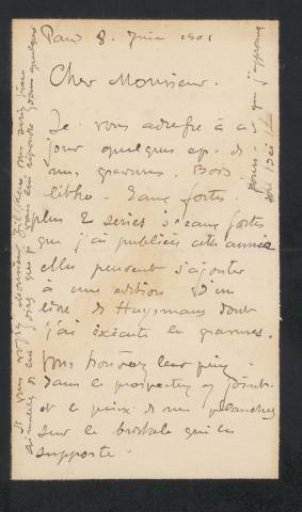 Paris 8. Juin 1901
Cher Monsieur.
Je vous adresse à ce
jour quelques ep. de
mes gravures. Bois
litho. Eaux fortes.
plus 2 series d'eaux fortes
que j'ai publiées cette année
elles peuvent s'ajouter
à une edition d'un
livre de Huysmans dont
j'ai éxécuté les gravures.
Vous trouverez leur prix
dans le prospectus cy joint.
et le prix de mes planches
sur le bristol qui les
supporte.
Si vous voyez Monsieur
dans quelques
jours